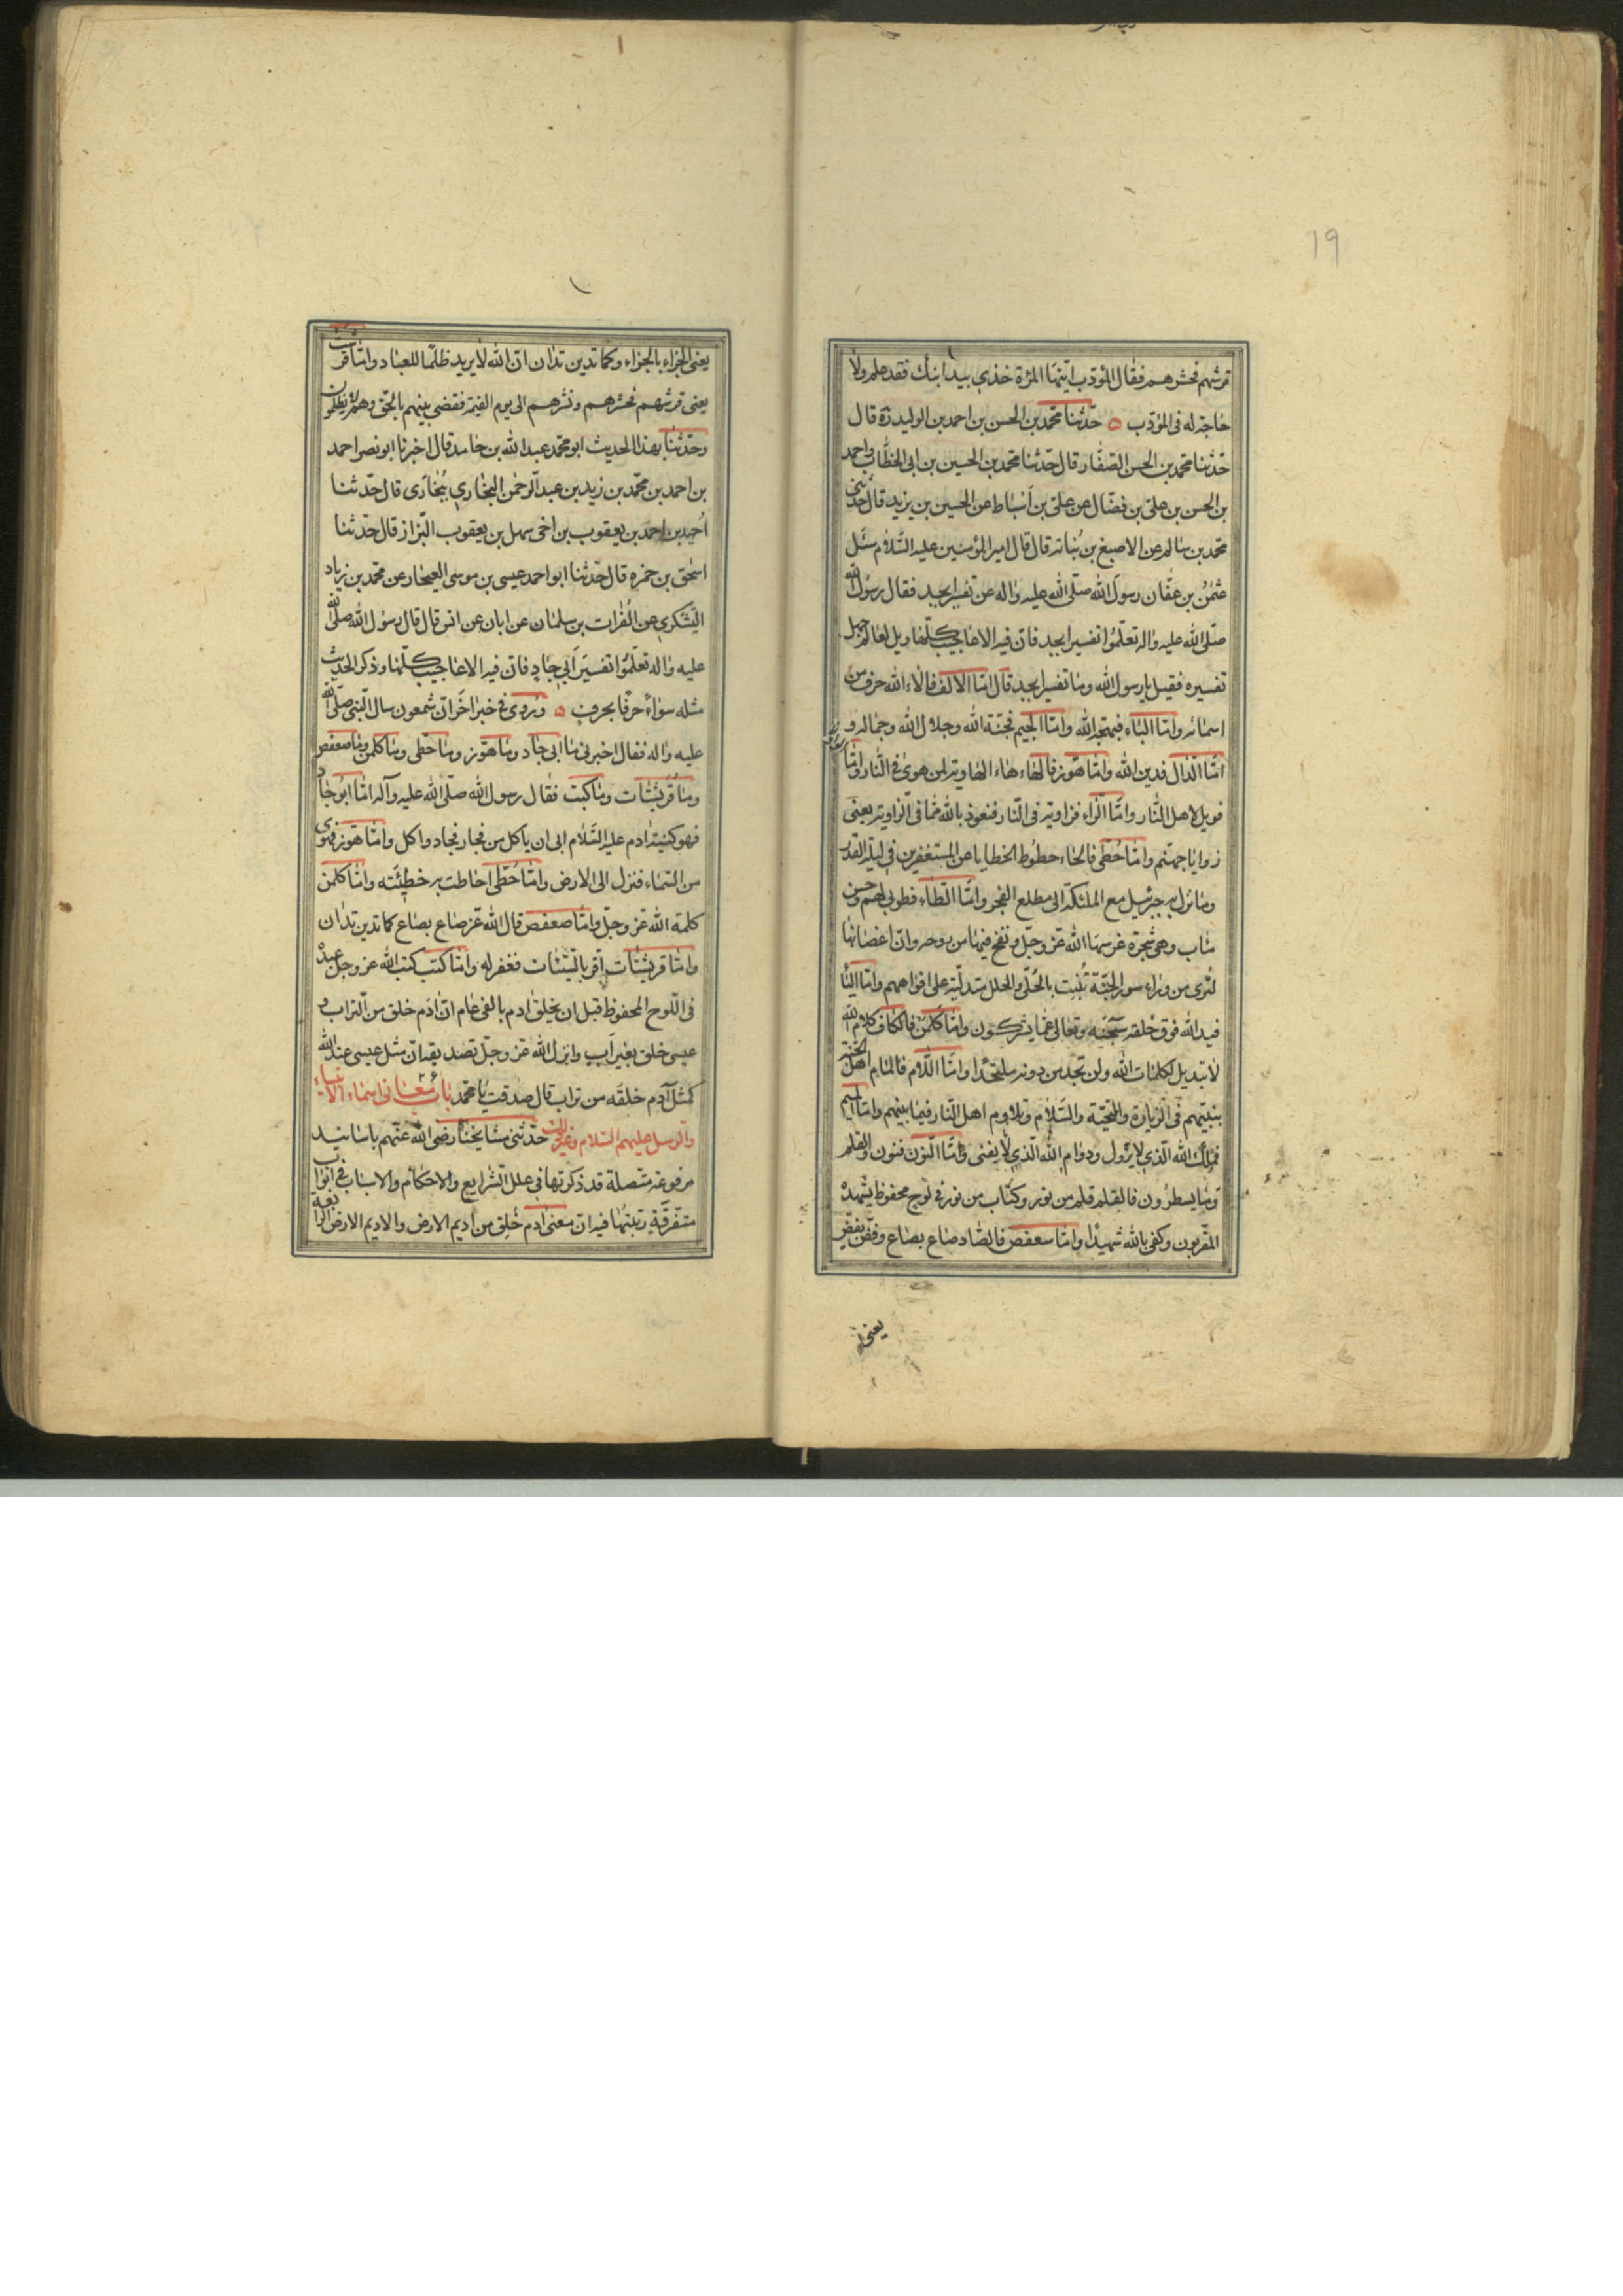 19
قرشهم فحشرهم فقال المؤدب ايتها المرءة خذي بيد ابنك فقد علم ولا
حاجة له في المؤدب ه حدّثنا محمد بن الحسن بن احمد بن الوليد ره قال
حدّثنا محمد بن الحسن الصفّار قال حدّثنا محمد بن الحسين بن ابي الخطّاب واحمد
بن الحسن بن علي بن فضّال عن علي بن أسباط عن الحسين بن يزيد قال حدّثني
محمد بن سالم عن الاصبغ بن نُباته قال قال امير المؤمنين عليه السّلام سئل
عثمٰن بن عفّان رسولَ الله صلّى الله عليه واله عن تفسير ابجد فقال رسُول الله
صلّى الله عليه واله تعلّمُوا تفسير ابجد فانّ فيه الاعاجيب كلّها ويل لعالم جهل
تفسيره فقيل يا رسول الله وما تفسير ابجد قال امّا الالف فالاء الله حرف من
اسمائه وامّا الباء فبهجة الله وامّا الجيم فجنّة الله وجلال الله وجماله و
امّا الدّال فدين الله وامّا هوّز فالهاء هاء الهاوية لمن هوىٰ في النّار وامّا
فويل لاهل النّار وامّا الزّاء فزاوية في النّار فنعوذ بالله ممّا في الزّاوية يعني
زوايا جهنّم وامّا حُطّي فالحاء حطُوط الخطايا عن المستغفرين في ليلة القدر
وما نزل به جبرئيل مع الملئكة الى مطلع الفجر وامّا الطاء فطوبى لهم وحسن
مٰاب وهي شجرة غرسها الله عزّ وجلّ ونفخ فيها من روحه وانّ اغصانها
لتُرى من وراء سور الجنّة تُنبِت بالحُلّي والحلل متدلّية على افواههم وامّا اليٰا
فيد الله فوق خلقه سبحٰنه وتعالى عمّا يشركون وامّا كلمن فالكاف كلام الله
لا تبديل لكلمات الله ولن تجد من دونه ملتحدًا وامّا اللّام فالمام اهل الجنّة
بينهم في الزيارة والتحيّة والسّلام وتلاوم اهل النار فيما بينهم وامّا الميم
فملك الله الّذي لا يزول ودوام الله الّذي لا يفنى وامّا النّون فنون والقلم
وما يسطرُون فالقلم قلم من نور وكتاب من نور في لوح محفوظ يشهدهُ
المقرّبون وكفى بالله شهيدًا وامّا سعفص فالصّاد صاع بصاع وفصّ بفصّ
يعني
يعني الجزاء بالجزاء وكما تدين تدان انّ الله لا يريد ظلمًا للعباد وامّا قرشت
يعني قرشهم فحشرهم ونشرهم الى يوم القيٰمة فقضى بينهم بالحقّ وهم لا يظلمون
وحدّثنا بهذا الحديث ابو محمد عبد الله بن حامد قال اخبرنا ابو نصر احمد
بن احمد بن محمد بن زيد بن عبد الرحمٰن البخاري بِبُخارَى قال حدّثنا
اُحيد بن احمد بن يعقوب بن اخي سهل بن يعقوب البّزاز قال حدّثنا
اسحٰق بن حمزه قال حدّثنا ابو احمد عيسى بن موسى العيجار عن محمد بن زياد
اليَشكري عن الفُرات بن سلمٰان عن ابان عن انس قال قال رسُول الله صلّى الله
عليه واله تعلّمُوا تفسيرَ اَبي جادٍ فانّ فيه الاعاجيب كلّها وذكر الحديث
مثله سواءً حرفًا بحرفٍ ه ويُروى في خبر اخَر انّ شمعون سال النّبي صلّى الله
عليه واله فقال اخبرني ما ابي جاد وما هوّز وما حطى وما كلمن وما صعفص
وما قُريشات وما كبت فقال رسول الله صلّى الله عليه وآله امّا ابُو جاد
فهو كنية اٰدم عليه السّلام ابى ان ياكل من فجار فجاد واكل وامّا هوّز فهوى
من السّماء فنزل الى الارض وامّا حُطّى احاطت به خطيئَته وامّا كلمن
كلمة الله عزّ وجلّ وامّا صعفص قال الله عزّ صاع بصاع كما تدين تدان
وامّا قريشات اقرّ بالسّيّئات فغفر له وامّا كتب كتب الله عز وجل عندهُ
في اللّوح المحفوظ قبل ان يخلق اٰدم بالفي عام انّ اٰدَم خلق من التّراب و
عيسى خلق بغير اَب وانزل الله عزّ وجلّ تصديقه انّ مثل عيسى عند الله
كمثل آدم خلقَه من تراب قال صدقت يا محمد باب معاني اسماء الانبياء
والرّسل عليهم السّلام وغير ذلك حدّثني مشايخنا رضي الله عنهم باسانيد
مرفوعة متّصلة قد ذكرتها في علل الشّرايع والاحكام والاسباب في ابواب
متفرّقة رتّبتها فيه انّ معنى اٰدم خُلِق من اديم الارض والاديم الارض الرابعة